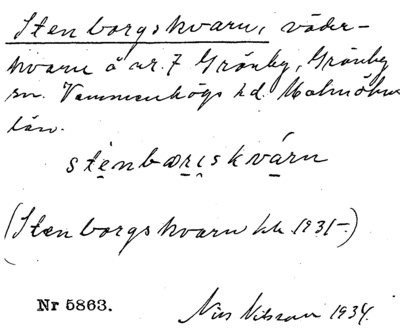 Stenborgskvarn, väder-
kvarn å nr. 7 Grönby, Grönby
sn. Vemmenhögs hd. Malmöhus
län.
stènbærıskvárn
(Stenborgskvarn hk 1931-)
Nr 5863. Nils Nilsson 1934.